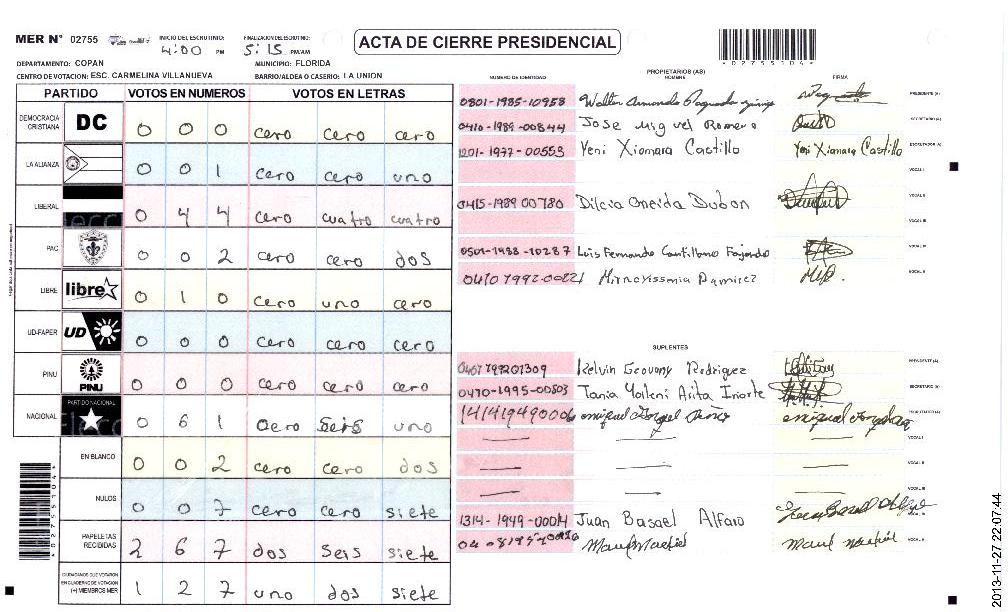 MER N° 02755
INICIO DEL ESCRUTINIO: 4:00 PM
FINALIZACION DEL ESCRUTINIO: 5:15 PM/AM
ACTA DE CIERRE PRESIDENCIAL
*02755104*
DEPARTAMENTO: COPAN
MUNICIPIO: FLORIDA
CENTRO DE VOTACION: ESC. CARMELINA VILLANUEVA
BARRIO/ALDEA O CASERIO: LA UNION
PARTIDO VOTOS EN NUMEROS VOTOS EN LETRAS
DEMOCRACIA CRISTIANA DC 0 0 0 cero cero cero
LA ALIANZA 0 0 1 cero cero uno
LIBERAL 0 4 4 cero cuatro cuatro
PAC 0 0 2 cero cero dos
LIBRE libre 0 1 0 cero uno cero
UD-FAPER UD 0 0 0 cero cero cero
PINU PINU 0 0 0 cero cero cero
NACIONAL PARTIDO NACIONAL 0 6 1 cero seis uno
EN BLANCO 0 0 2 cero cero dos
NULOS 0 0 7 cero cero siete
PAPELETAS RECIBIDAS 2 6 7 dos seis siete
CIUDADANOS QUE VOTARON EN CUADERNO DE VOTACION (+) MIEMBROS MER 1 2 7 uno dos siete
*02755104*
PROPIETARIOS (AS)
NUMERO DE IDENTIDAD NOMBRE FIRMA
0801-1985-10958 Walter Armando PRESIDENTE (A)
0410-1989-00844 Jose Miguel Romero SECRETARIO (A)
1201-1977-00553 Yeni Xiomara Castillo Yeni Xiomara Castillo ESCRUTADOR (A)
VOCAL I
0415-1989 00780 Dilcia Oneida Dubon VOCAL II
VOCAL III
0501-1988-10287 Luis Fernando Cantillano Fajardo
Ramirez
SUPLENTES
Kelvin Geovany Rodriguez PRESIDENTE (A)
0410-1995-00503 Tania Yarleni Arita Iriarte SECRETARIO (A)
miguel Angel
VOCAL I
VOCAL II
VOCAL III
Juan Basael Alfaro
2013-11-27 22:07:44